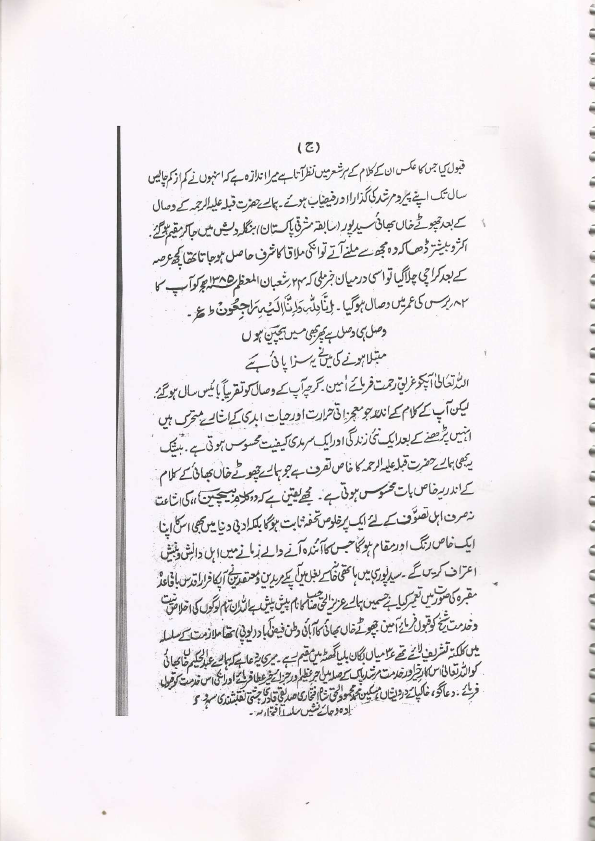 (ج)
قبول کیا جس کا عکس ان کے کلام کے ہر شعر میں نظر آتا ہے میرا اندازہ ہے کہ انہوں نے کم از کم چالیس
سال تک اپنے پیر و مرشد کی گذارا اور فیضیاب ہوئے۔ ہمارے حضرت قبلہ علیہ الرحمہ کے وصال
کے بعد چھوٹے خاں بھائی سیدپور (سابقہ مشرقی پاکستان) بنگلہ دیش میں جاکر مقیم ہو گئے۔
اکثر و بیشتر ڈھاکہ وہ مجھ سے ملنے آتے تو انکی ملاقا کا شرف حاصل ہو جاتا تھا کچھ عرصہ
کے بعد کراچی چلا گیا تو اسی درمیان خبر ملی کہ ۲۴ شعبان المعظم ۱۳۸۵ھ کو آپ کا
۸۲ برس کی عمر میں وصال ہو گیا۔ اِنَّا لِلّٰہِ وَاِنَّا اِلَیْہِ رَاجِعُوْنَ ط
وصل ہی وصل ہے پھر بھی میں بیچین ہوں
مبتلا ہونے کی میں نے یہ سزا پائی ہے
اللہ تعالیٰ آپکو غریق رحمت فرمائے آمین۔ گرچہ آپ کے وصال کو تقریباً بائیس سال ہو گئے
لیکن آپ کے کلام کے اندر جو معجزاتی حرارت اور حیات ابدی کے اشارے متحرک ہیں
انہیں پڑھنے کے بعد ایک نئی زندگی اور ایک سرمدی کیفیت محسوس ہوتی ہے۔ بیشک
یہ بھی ہمارے حضرت قبلہ علیہ الرحمہ کا خاص تصرف ہے جو ہمارے چھوٹے خاں بھائی کے کلام
کے اندر یہ خاص بات محسوس ہوتی ہے۔ مجھے یقین ہے کہ وہ کلام بیچین، کی اشاعت
نہ صرف اہل تصوّف کے لئے ایک پر خلوص تحفہ ثابت ہوگا بلکہ ادبی دنیا میں بھی اسکا اپنا
ایک خاص رنگ اور مقام ہوگا جس کا آئندہ آنے والے زمانے میں اہل دانش و بینش
اعتراف کریں گے۔ سیدپور ہی میں ہاتھی خانہ کے بغل میں آپکے مریدین و معتقدین نے آپکا مزار اقدس باقاعدہ
مقبرہ کی صورت میں تعمیر کیا ہے جسمیں ہمارے عزیز الحق صاحب کا نام پیش پیش ہے اللہ ان تمام لوگوں کی اخلاص نیت
و خدمت شیخ کو قبول فرمائے آمین چھوٹے خاں بھائی کا آبائی وطن فیض آباد (یوپی) تھا ملازمت کے سلسلہ
میں کلکتہ تشریف لائے تھے میری دعا ہے کہ ہمارے عبدالحکیم خاں بھائی
کو اللہ تعالیٰ اس کار خیر اور خدمت مرشد پاک کے صلہ میں اجر عظیم اور جزائے خیر عطا فرمائے اور انکی اس خدمت کو قبول
فرمائے۔ دعاگو، خاکپائے درویشاں